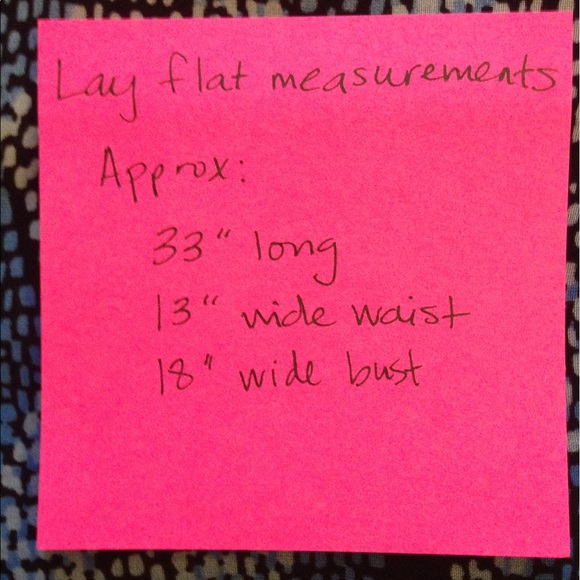 Lay flat measurements
Approx:
33" long
13" wide waist
18" wide bust